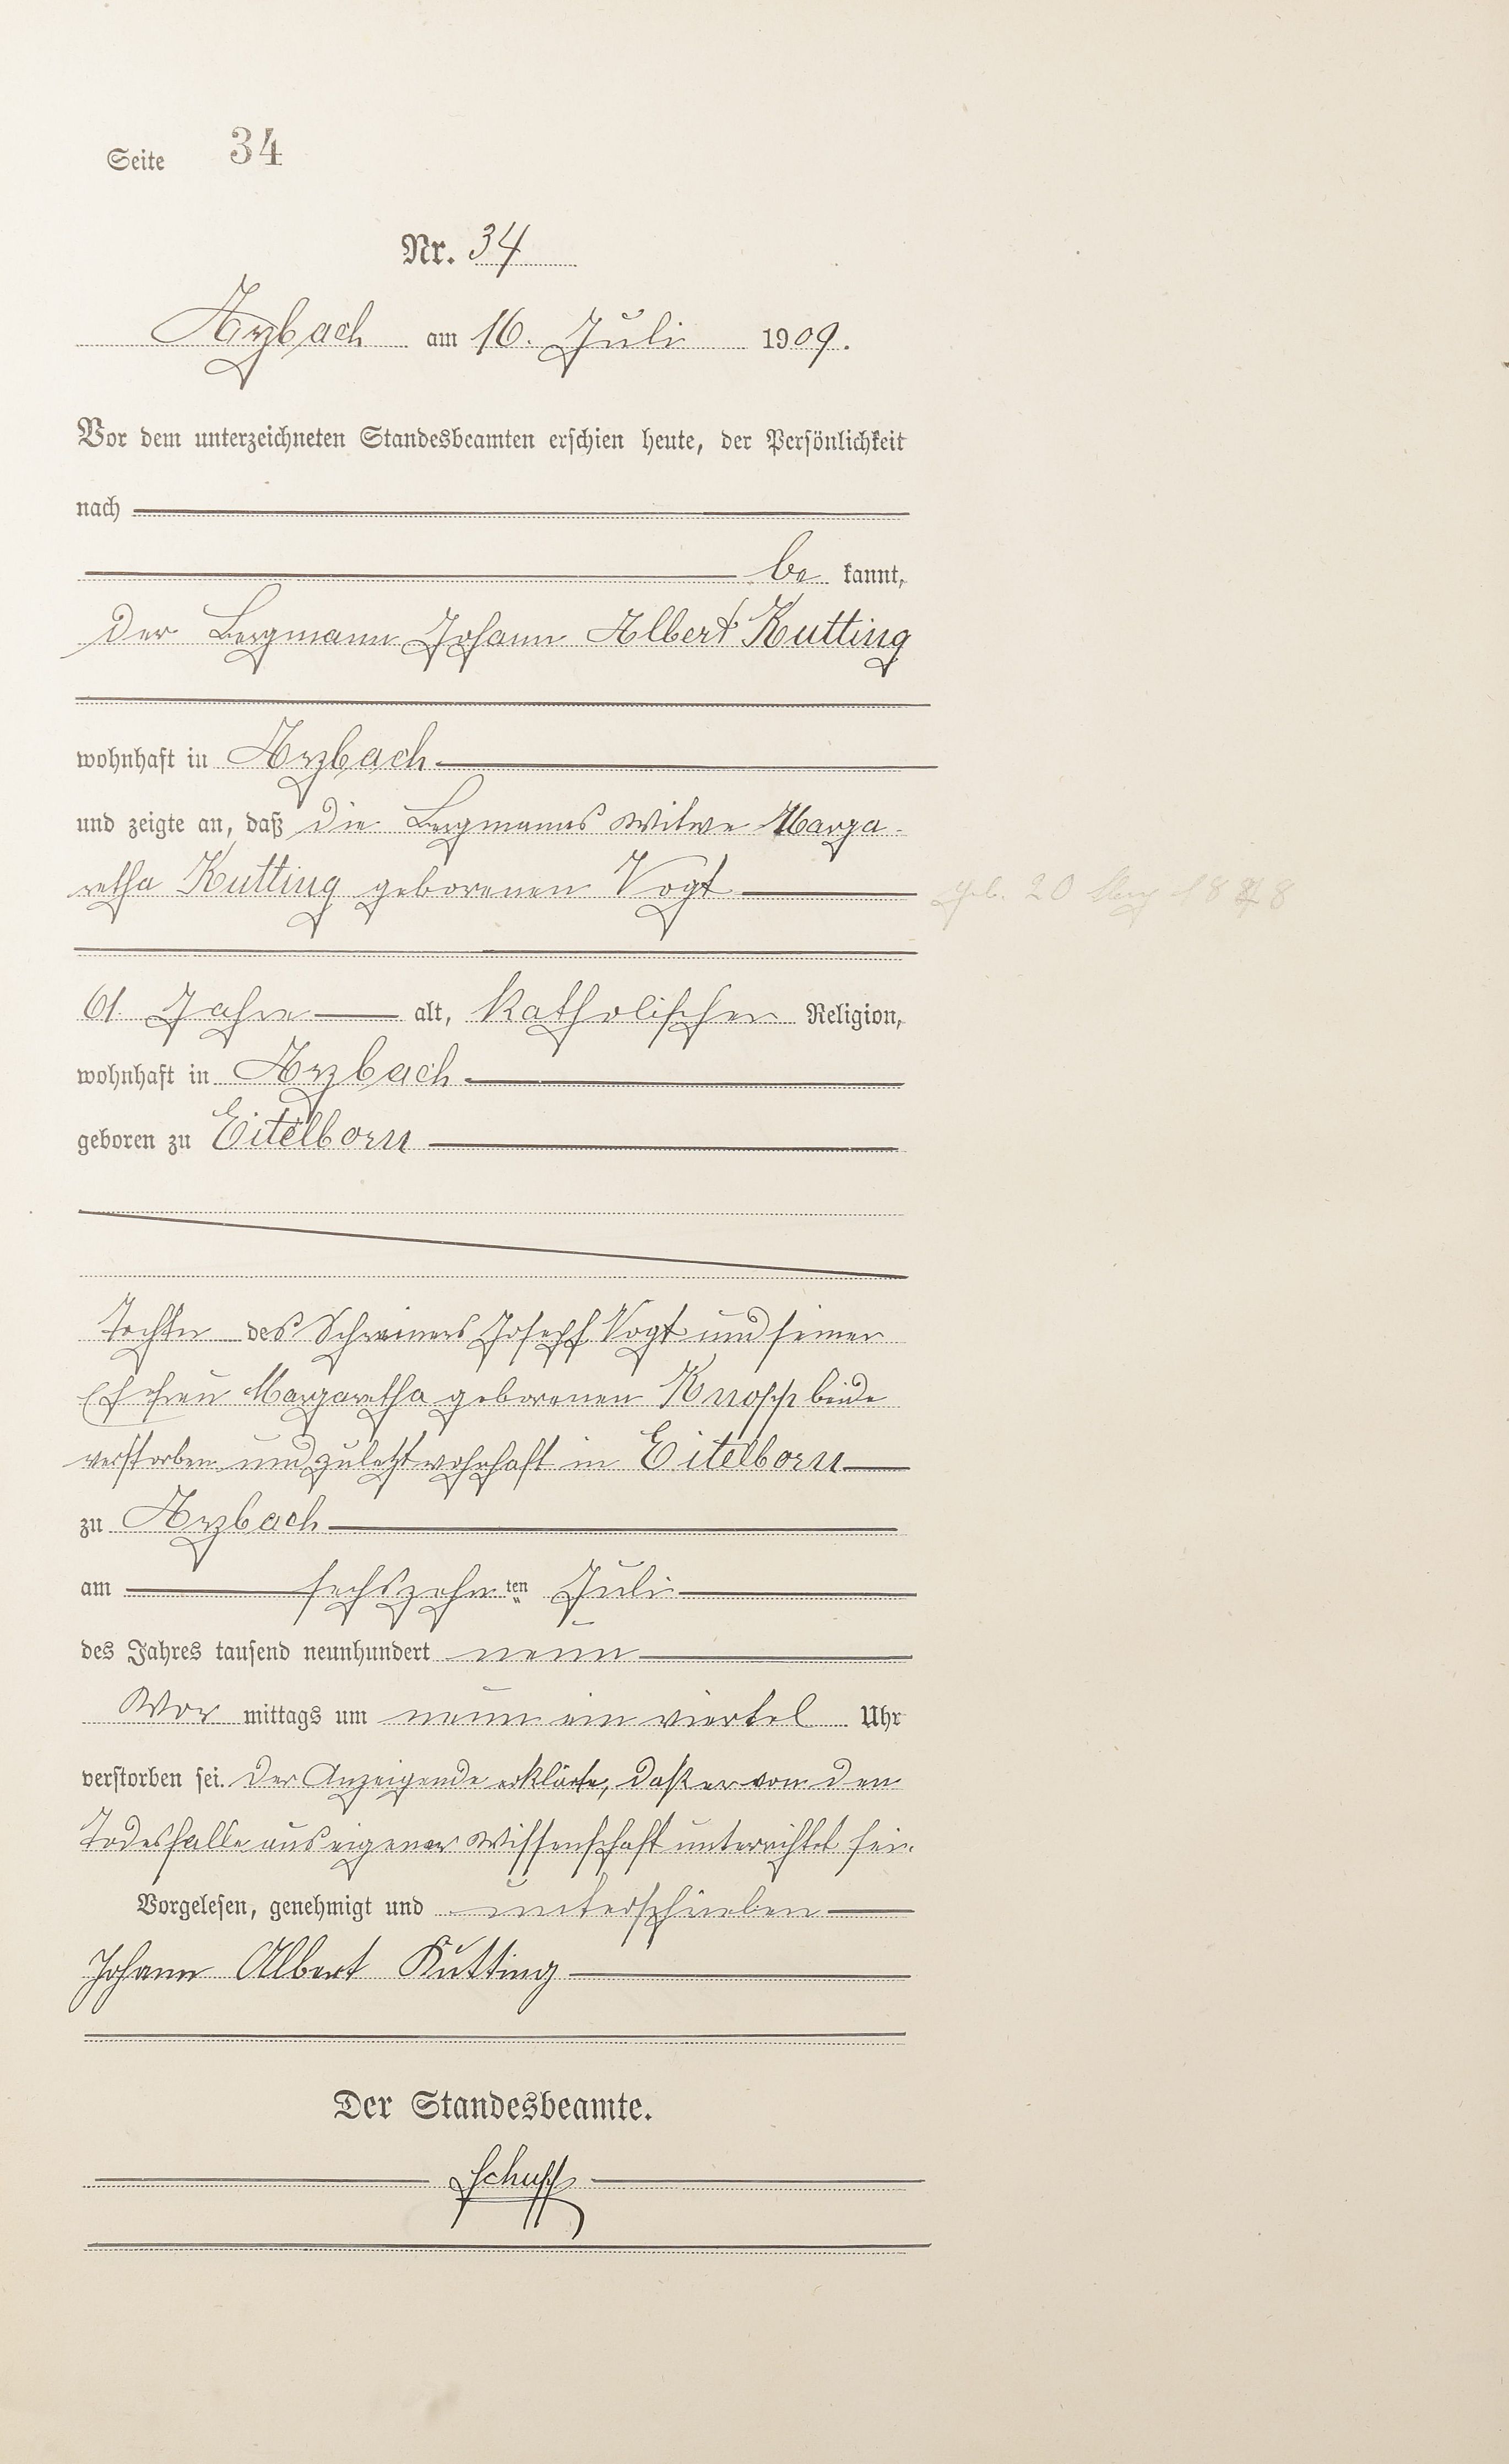 Seite 34
Nr. 34
Arzbach am 16. Juli 1909.
Vor dem unterzeichneten Standesbeamten erschien heute, der Persönlichkeit
nach
be kannt,
der Bergmann Johann Albert Kutting
wohnhaft in Arzbach
und zeigte an, daß die Bergmanns Witwe Marga-
retha Kutting geborenen Vogt
geb. 20 1848
61 Jahre alt, katholischer Religion,
wohnhaft in Arzbach
geboren zu Eitelborn
Tochter des Schreiners Joseph Vogt und seiner
Ehefrau Margaretha geborenen Knopp beide
verstorben und zuletzt wohnhaft in Eitelborn
zu Arzbach
am sechszehnten Juli
des Jahres tausend neunhundert neun
Vor mittags um neun ein viertel Uhr
verstorben sei. Der Anzeigende erklärte, daß er von den
Todesfalle aus eigener Wissenschaft unterrichtet sei.
Vorgelesen, genehmigt und unterschrieben
Johann Albert Kutting
Der Standesbeamte.
Schupp